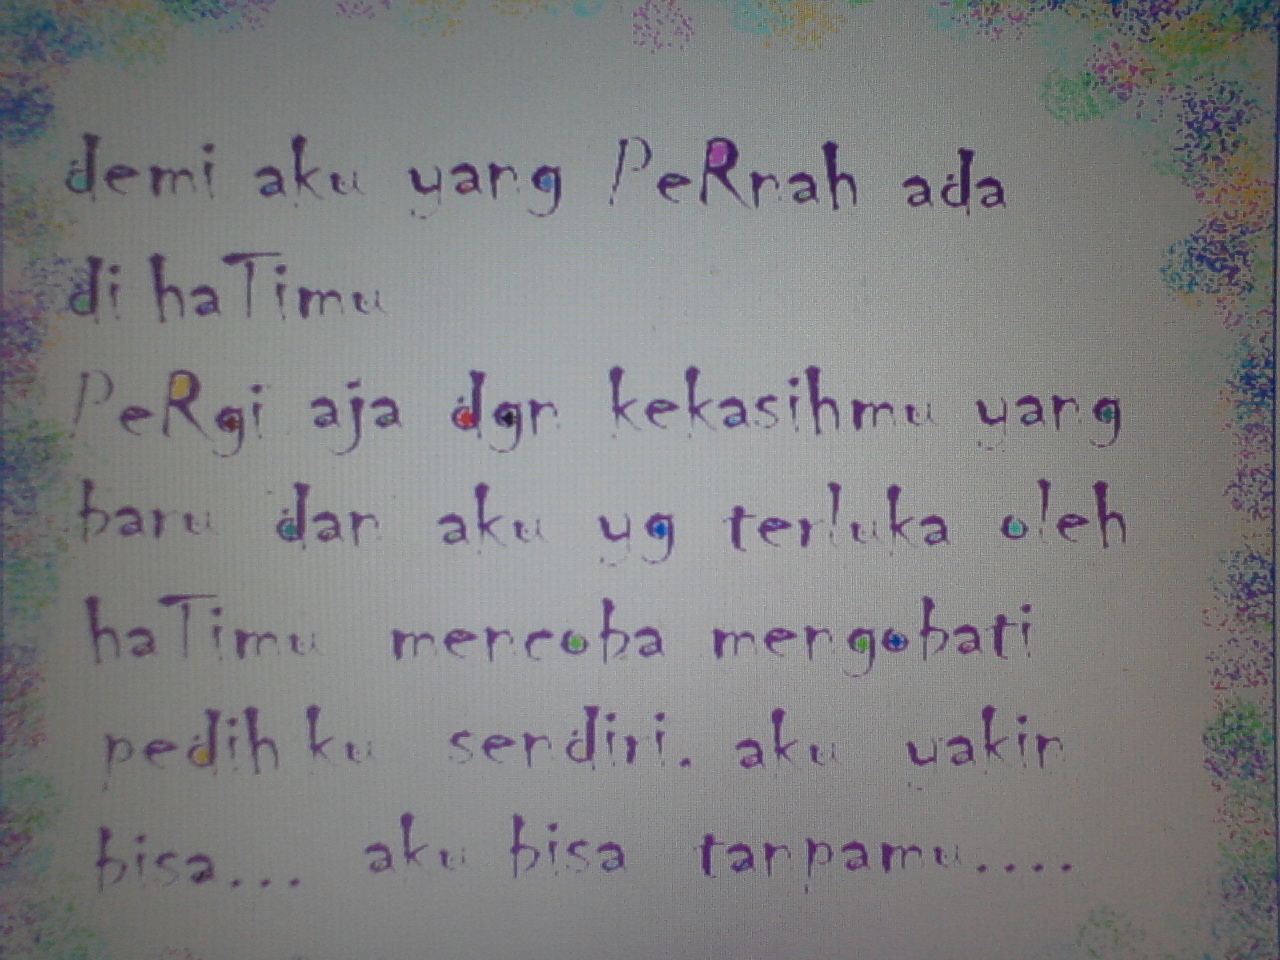 demi aku yang PeRnah ada
di haTimu
PeRgi aja dgn kekasihmu yang
baru dan aku yg terluka oleh
haTimu mencoba mengobati
pedih ku sendiri. aku yakin
bisa... aku bisa tanpamu....